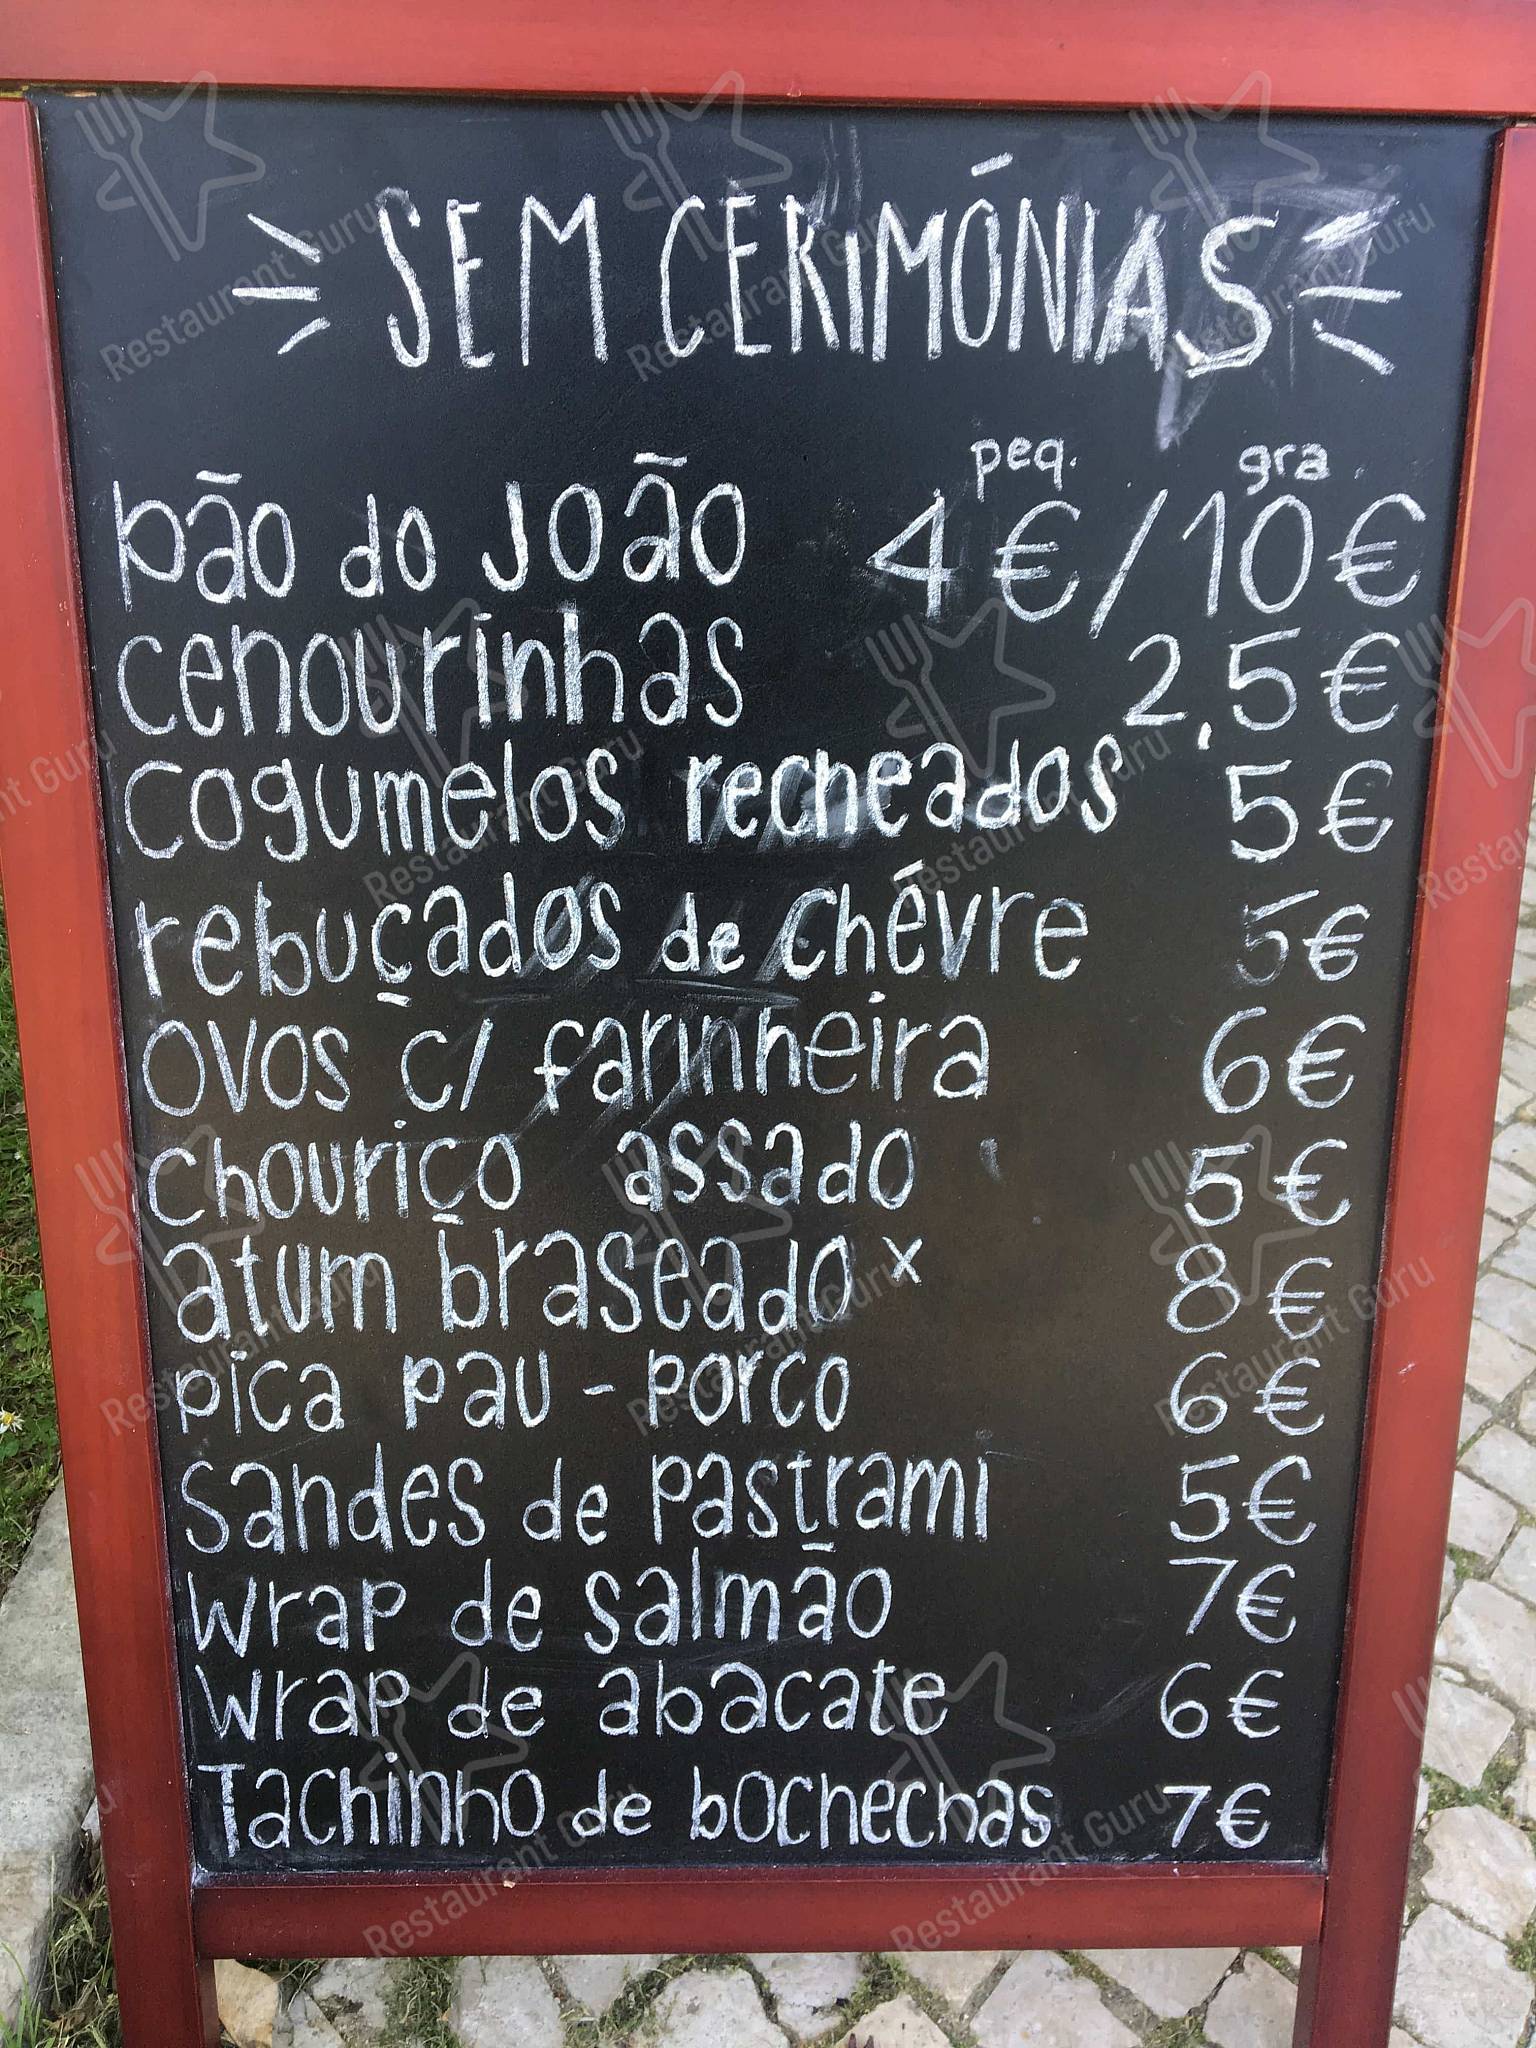 SEM CERIMÓNIAS
peq. gra.
pão do João 4€/10€
cenourinhas 2,5€
cogumelos recheados 5€
rebuçados de chévre 5€
ovos c/ farinheira 6€
chouriço assado 5€
atum braseado x 8€
pica pau - porco 6€
sandes de pastrami 5€
wrap de salmão 7€
wrap de abacate 6€
Tachinho de bochechas 7€
Restaurant Guru